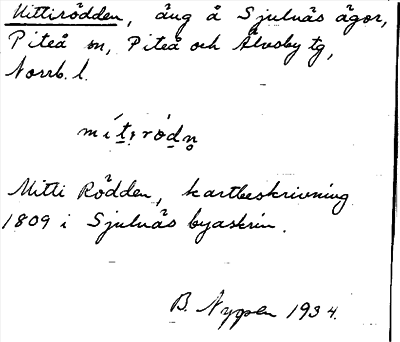 Mittirödden, äng å Sjulnäs ägor,
Piteå sn, Piteå och Älvsby tg,
Norrb. l.
mítiródn̥
Mitti Rödden, kartbeskrivning
1809 i Sjulnäs byaskrin.
B. Nygren 1934.